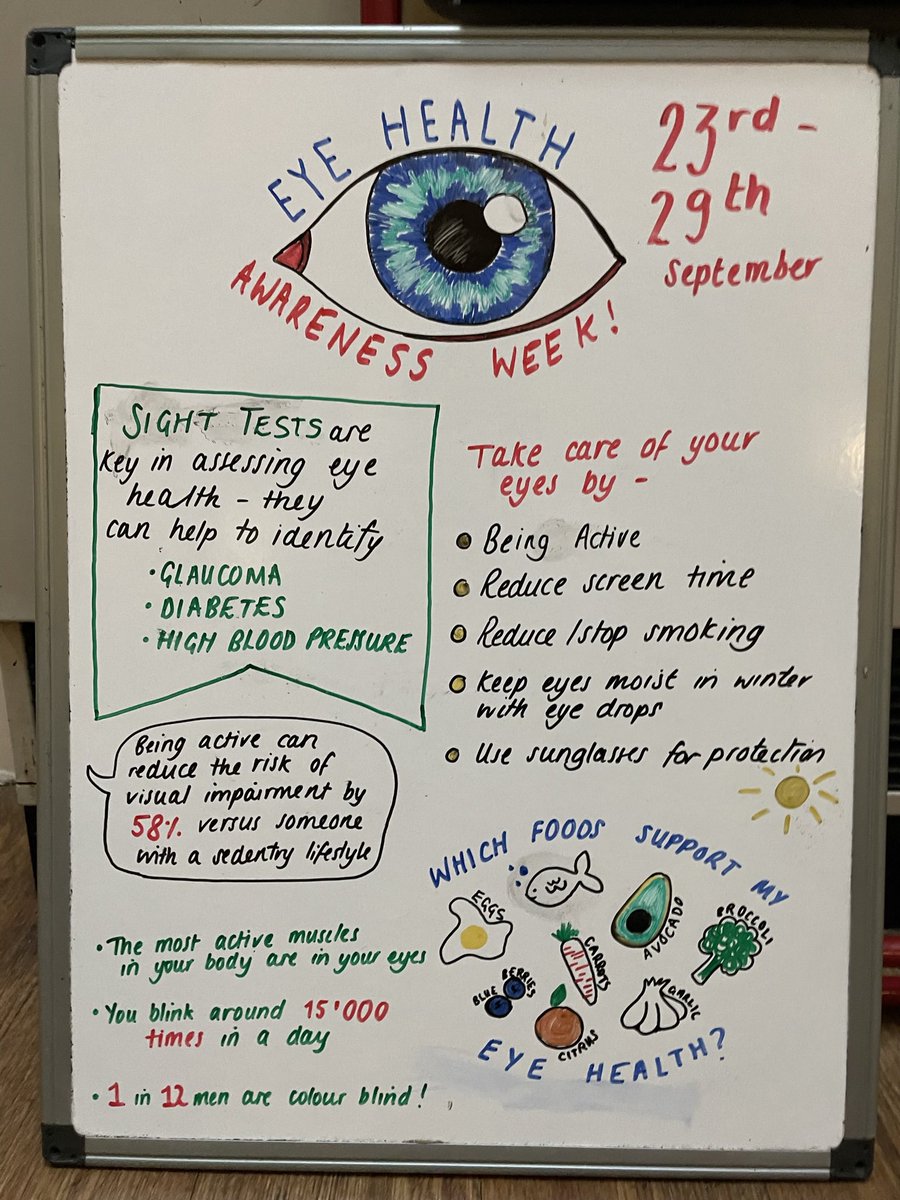 EYE HEALTH
AWARENESS WEEK!
23rd -
29th
September
SIGHT TESTS are
key in assessing eye
health - they
can help to identify
• GLAUCOMA
• DIABETES
• HIGH BLOOD PRESSURE
Take care of your
eyes by -
Being Active
Reduce screen time
Reduce/stop smoking
Keep eyes moist in winter
with eye drops
Use sunglasses for protection
Being active can
reduce the risk of
visual impairment by
58% versus someone
with a sedentry lifestyle
• The most active muscles
in your body are in your eyes
• You blink around 15'000
times in a day
• 1 in 12 men are colour blind!
WHICH FOODS SUPPORT MY
EGGS
AVOCADO
BROCCOLI
CARROTS
BLUE BERRIES
GARLIC
CITRUS
EYE HEALTH?